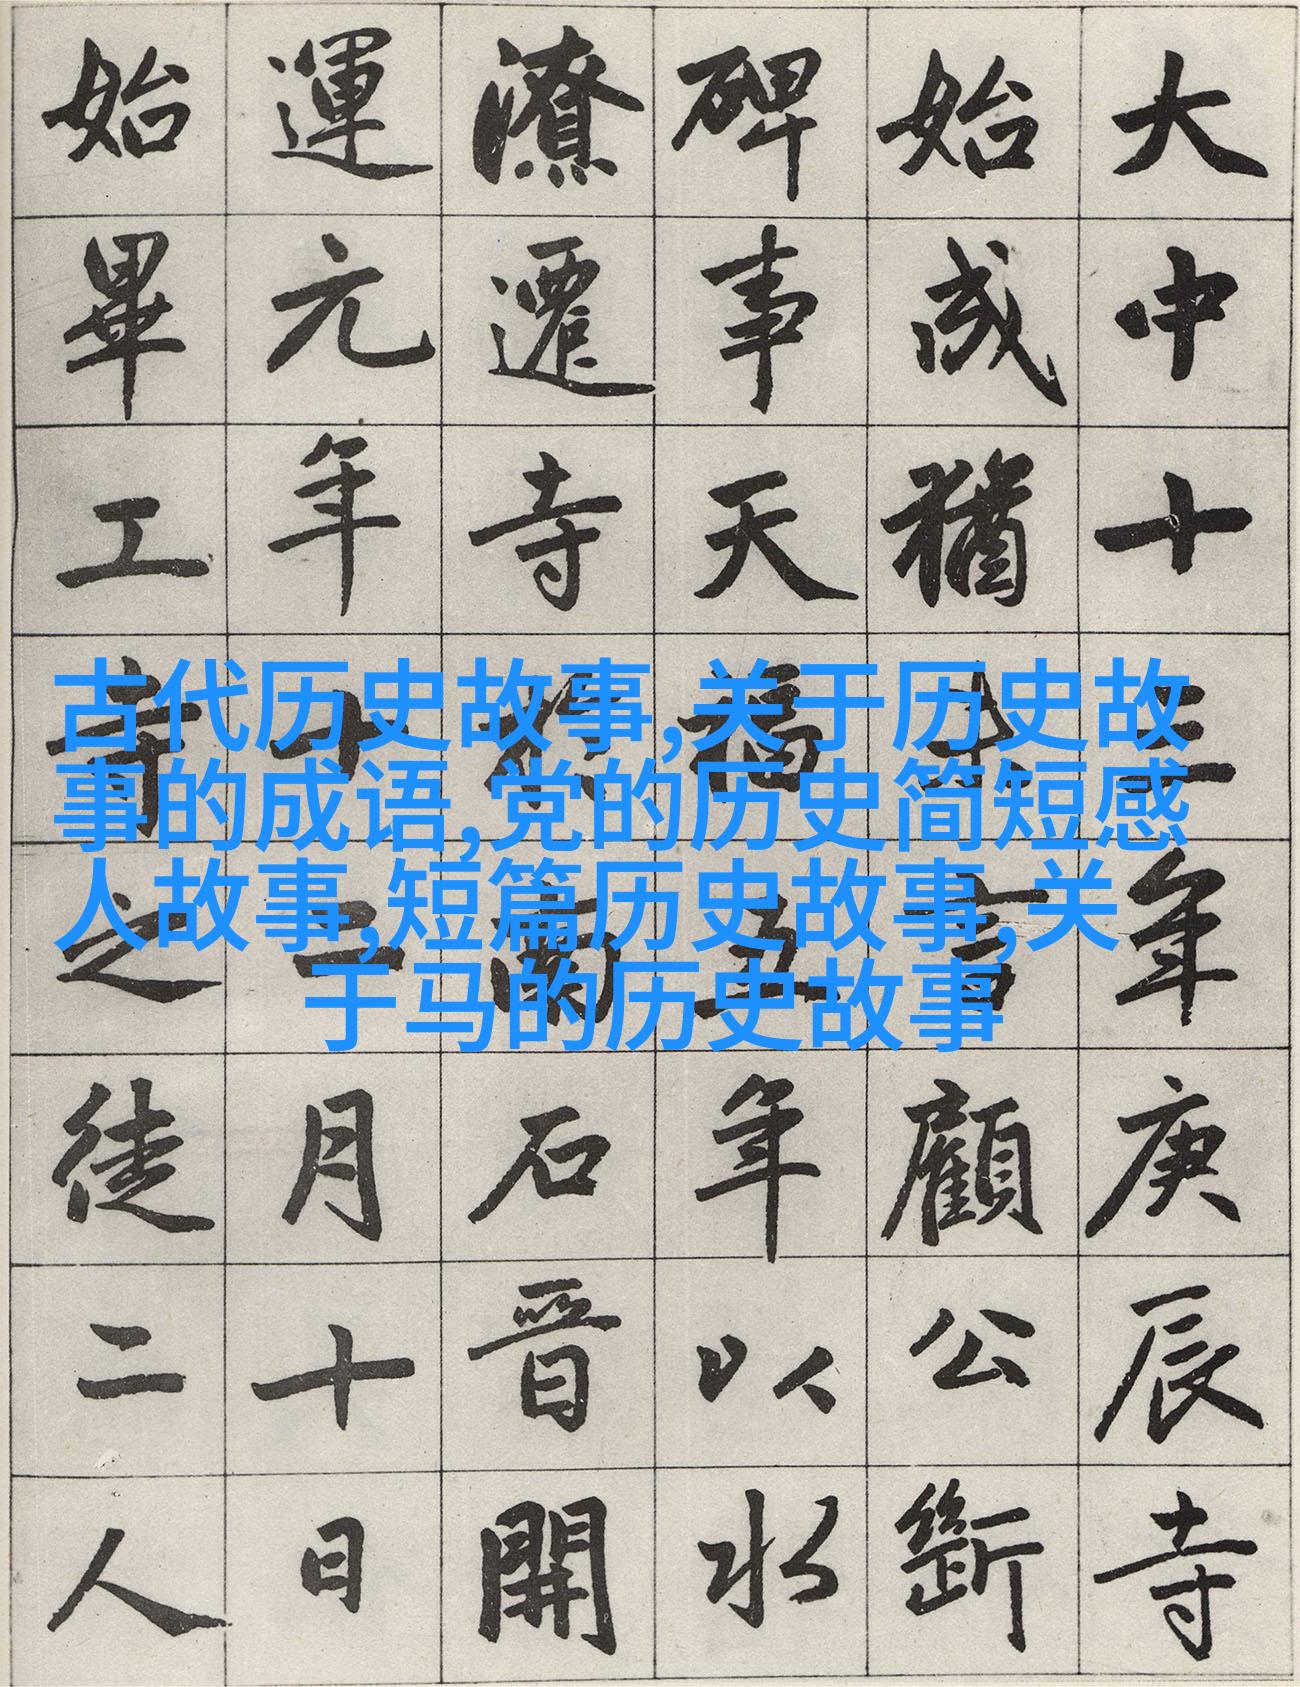 大中十三年庚辰寺
始成猶未言顧公斷
碑事天福五年以水
潦遷寺於南石晉開
運元年十二月十日
始畢工寺之徒二人
古代历史故事,关于历史故
事的成语,党的历史简短感
人故事,短篇历史故事,关
于马的历史故事